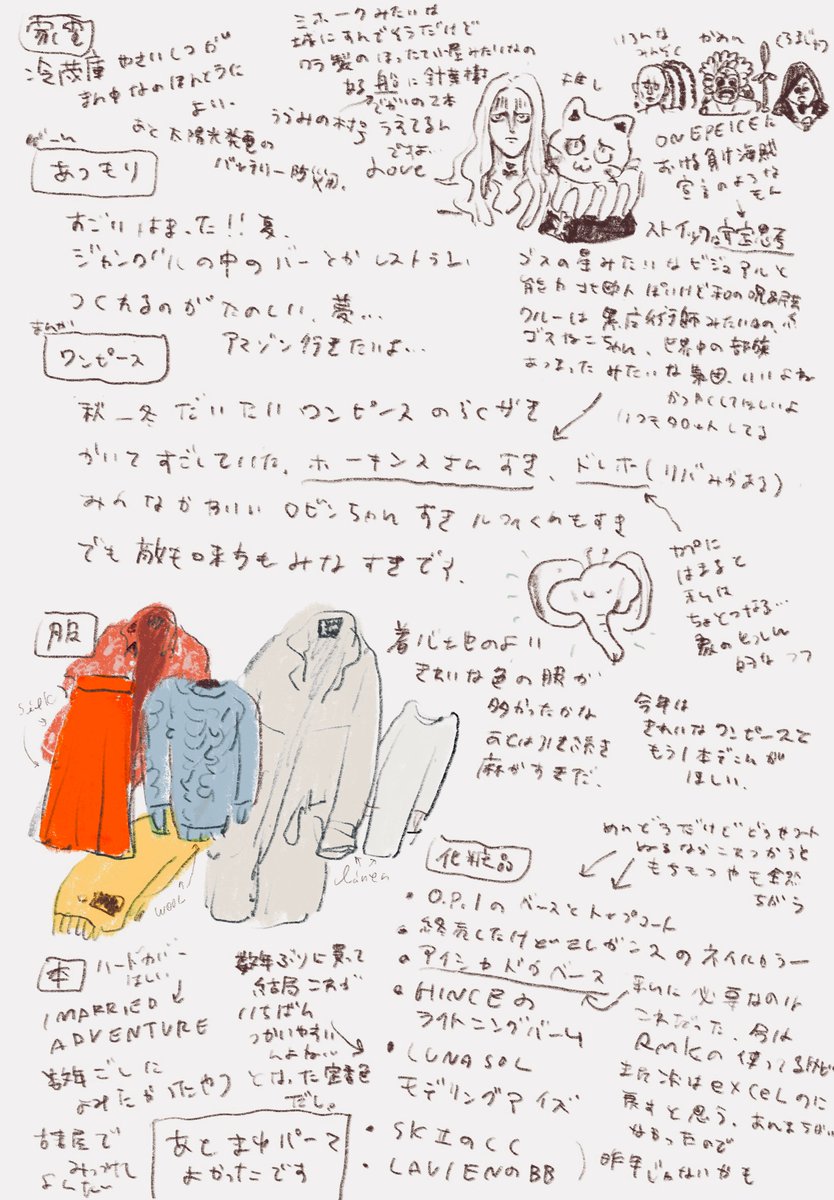 家電
冷蔵庫 やさいしつが
まん中なのほんとうに
よい、
あと太陽光発電の
バッテリー
ミホークみたいは
城にすんでそうだけど
ワラ製のほったて小屋みたいなの
船に針葉樹
うらみの村
うえてるん
ですよ…
Love
推し
いろんな
みんぞく
かめん
くろまじゅつ
ONEPEICEに
おける負け海賊
宣言のような
もん
ストイックな
ゲーム
あつもり
すごいはまった!!夏、
ジャングルの中のバーとかレストラン
つくれるのがたのしい、夢…
アマゾン行きたいよ…
ゴスの星みたいなビジュアルと
能力 北欧人ぽいけど和の呪
クルーは黒魔術師みたいなの、
ゴスなねこちゃん、世界中の部族
あつまったみたいな集団、いいよね
かつやくしてほしいよ
いつもタロットしてる
まんが
ワンピース
秋_冬 だいたいワンピースのらくがき
かいてすごしていた、ホーキンスさんすき、ドレホ(リバみがある)
みんなかわいい ロビンちゃんすき ルフィくんもすき
でも敵も味方もみなすきです、
カプに
はまると
私は
ちょとつなる…
象のとっしん
的なやつ
服
silk
wool
linen
着バエのよい
きれいな色の服が
多かったかな
あとは引き続き
麻がすきだ、
今年は
きれいなワンピースと
もう1本デニムが
ほしい、
化粧品
めんどうだけどどうせコート
ぬるならこれつかうと
もちもつやも全然
ちがう
・O.P.Iのベースとトップコート
・終売したけどエレガンスのネイルカラー
・アイシャドウベース
・HINCEの
ライトニングバーム
・LUNASOL
モデリングアイズ
・SKⅡのCC
・LAVIENのBB
私に必要なのは
これだった、今は
RMKの使ってるけど
次はexcelのに
戻すと思う、あんまちがい
なかったので
昨年じゃないかも
本
ハードカバー
ほしい
I MARRIED
ADVENTURE
数年ごしに
よみたかったやつ
古本屋で
みつけて
よんだい
数年ぶりに買って
結局これが
いちばん
つかいやすい
んよね…
となった定番色
だし。
あとまゆパーマ
よかったです